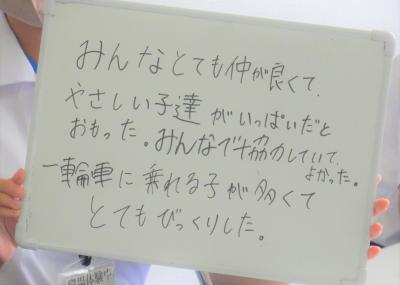 みんなとても仲が良くて、
やさしい子達がいっぱいだと
おもった。みんなで協力していて、
よかった。
一輪車に乗れる子が多くて
とてもびっくりした。
職場体験中